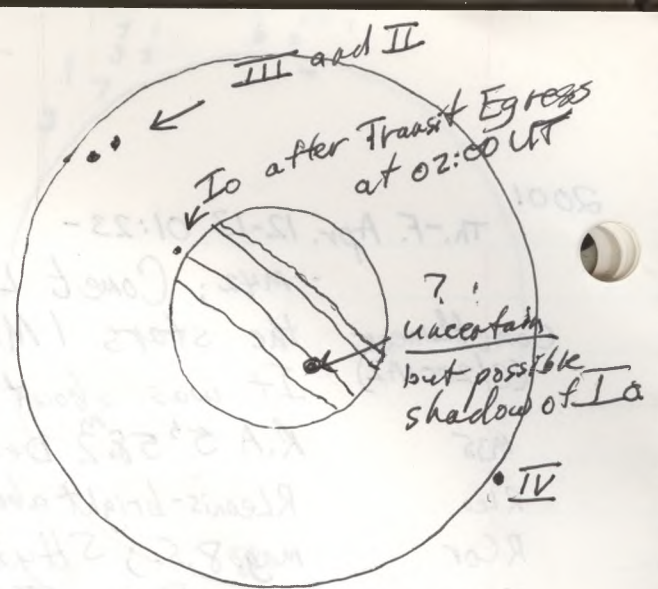 III and II
Io after Transit Egress
at 02:00 UT
?
uncertain
but possible
shadow of Io
IV